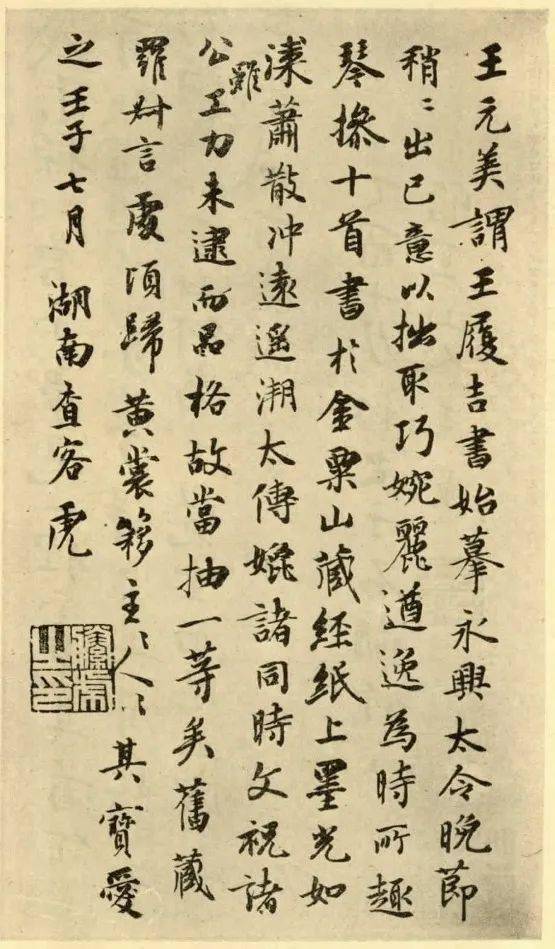 王元美謂王履吉書始摹永興太令晚節
稍〻出己意以拙取巧婉麗遒逸為時所趣
琴操十首書於金粟山藏經紙上墨光如
漆蕭散沖遠遥溯太傅媲諸同時文祝諸
公雖工力未逮而品格故當抽一等矣舊藏
羅叔言處頃歸黃裳簃主〻人〻其寶愛
之壬子七月 湖南查客虎